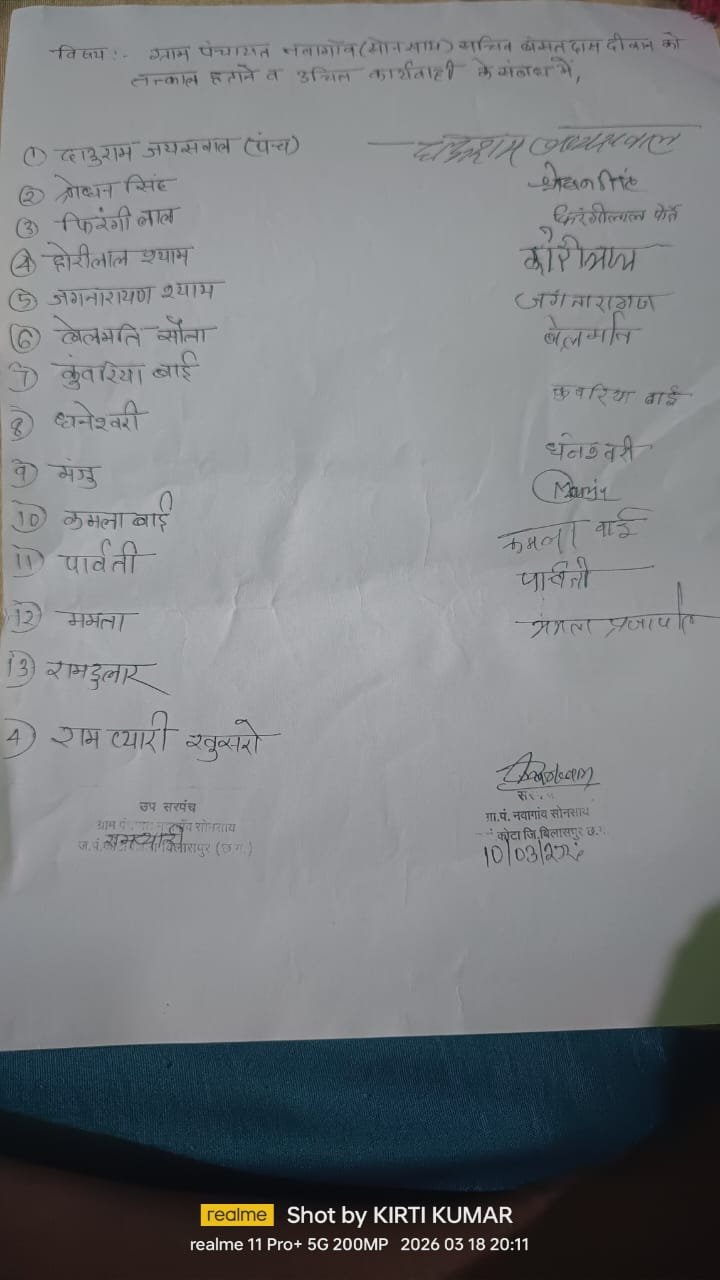 विषय :- ग्राम पंचायत नवागाँव (सोनसाय) सचिव दास दीवान को
तत्काल हटाने व उचित कार्यवाही के संबंध में,
① दाउराम जयसवाल (पंच) दाऊराम जायसवाल
② सिंह
③ फिरंगी लाल फिरंगीलाल
④ होरीलाल श्याम
⑤ जगनारायण श्याम जगनारायण
⑥ बेलमति बेलमति
⑦ कुंवरिया बाई कुवरिया बाई
⑧ धनेश्वरी धनेश्वरी
⑨ मंजु Manju
⑩ कमला बाई कमला बाई
⑪ पार्वती पार्वती
⑫ ममता प्रजापति
⑬ रामदुलार
4) राम प्यारी खुसरो
उप सरपंच
ग्राम पंचायत नवागाँव सोनसाय
रामप्यारी
ज.पं. बिलासपुर (छ.ग.)
ग्रा.पं. नवागांव सोनसाय
कोटा जि.बिलासपुर छ.ग.
10/03/
realme Shot by KIRTI KUMAR
realme 11 Pro+ 5G 200MP 2026 03 18 20:11